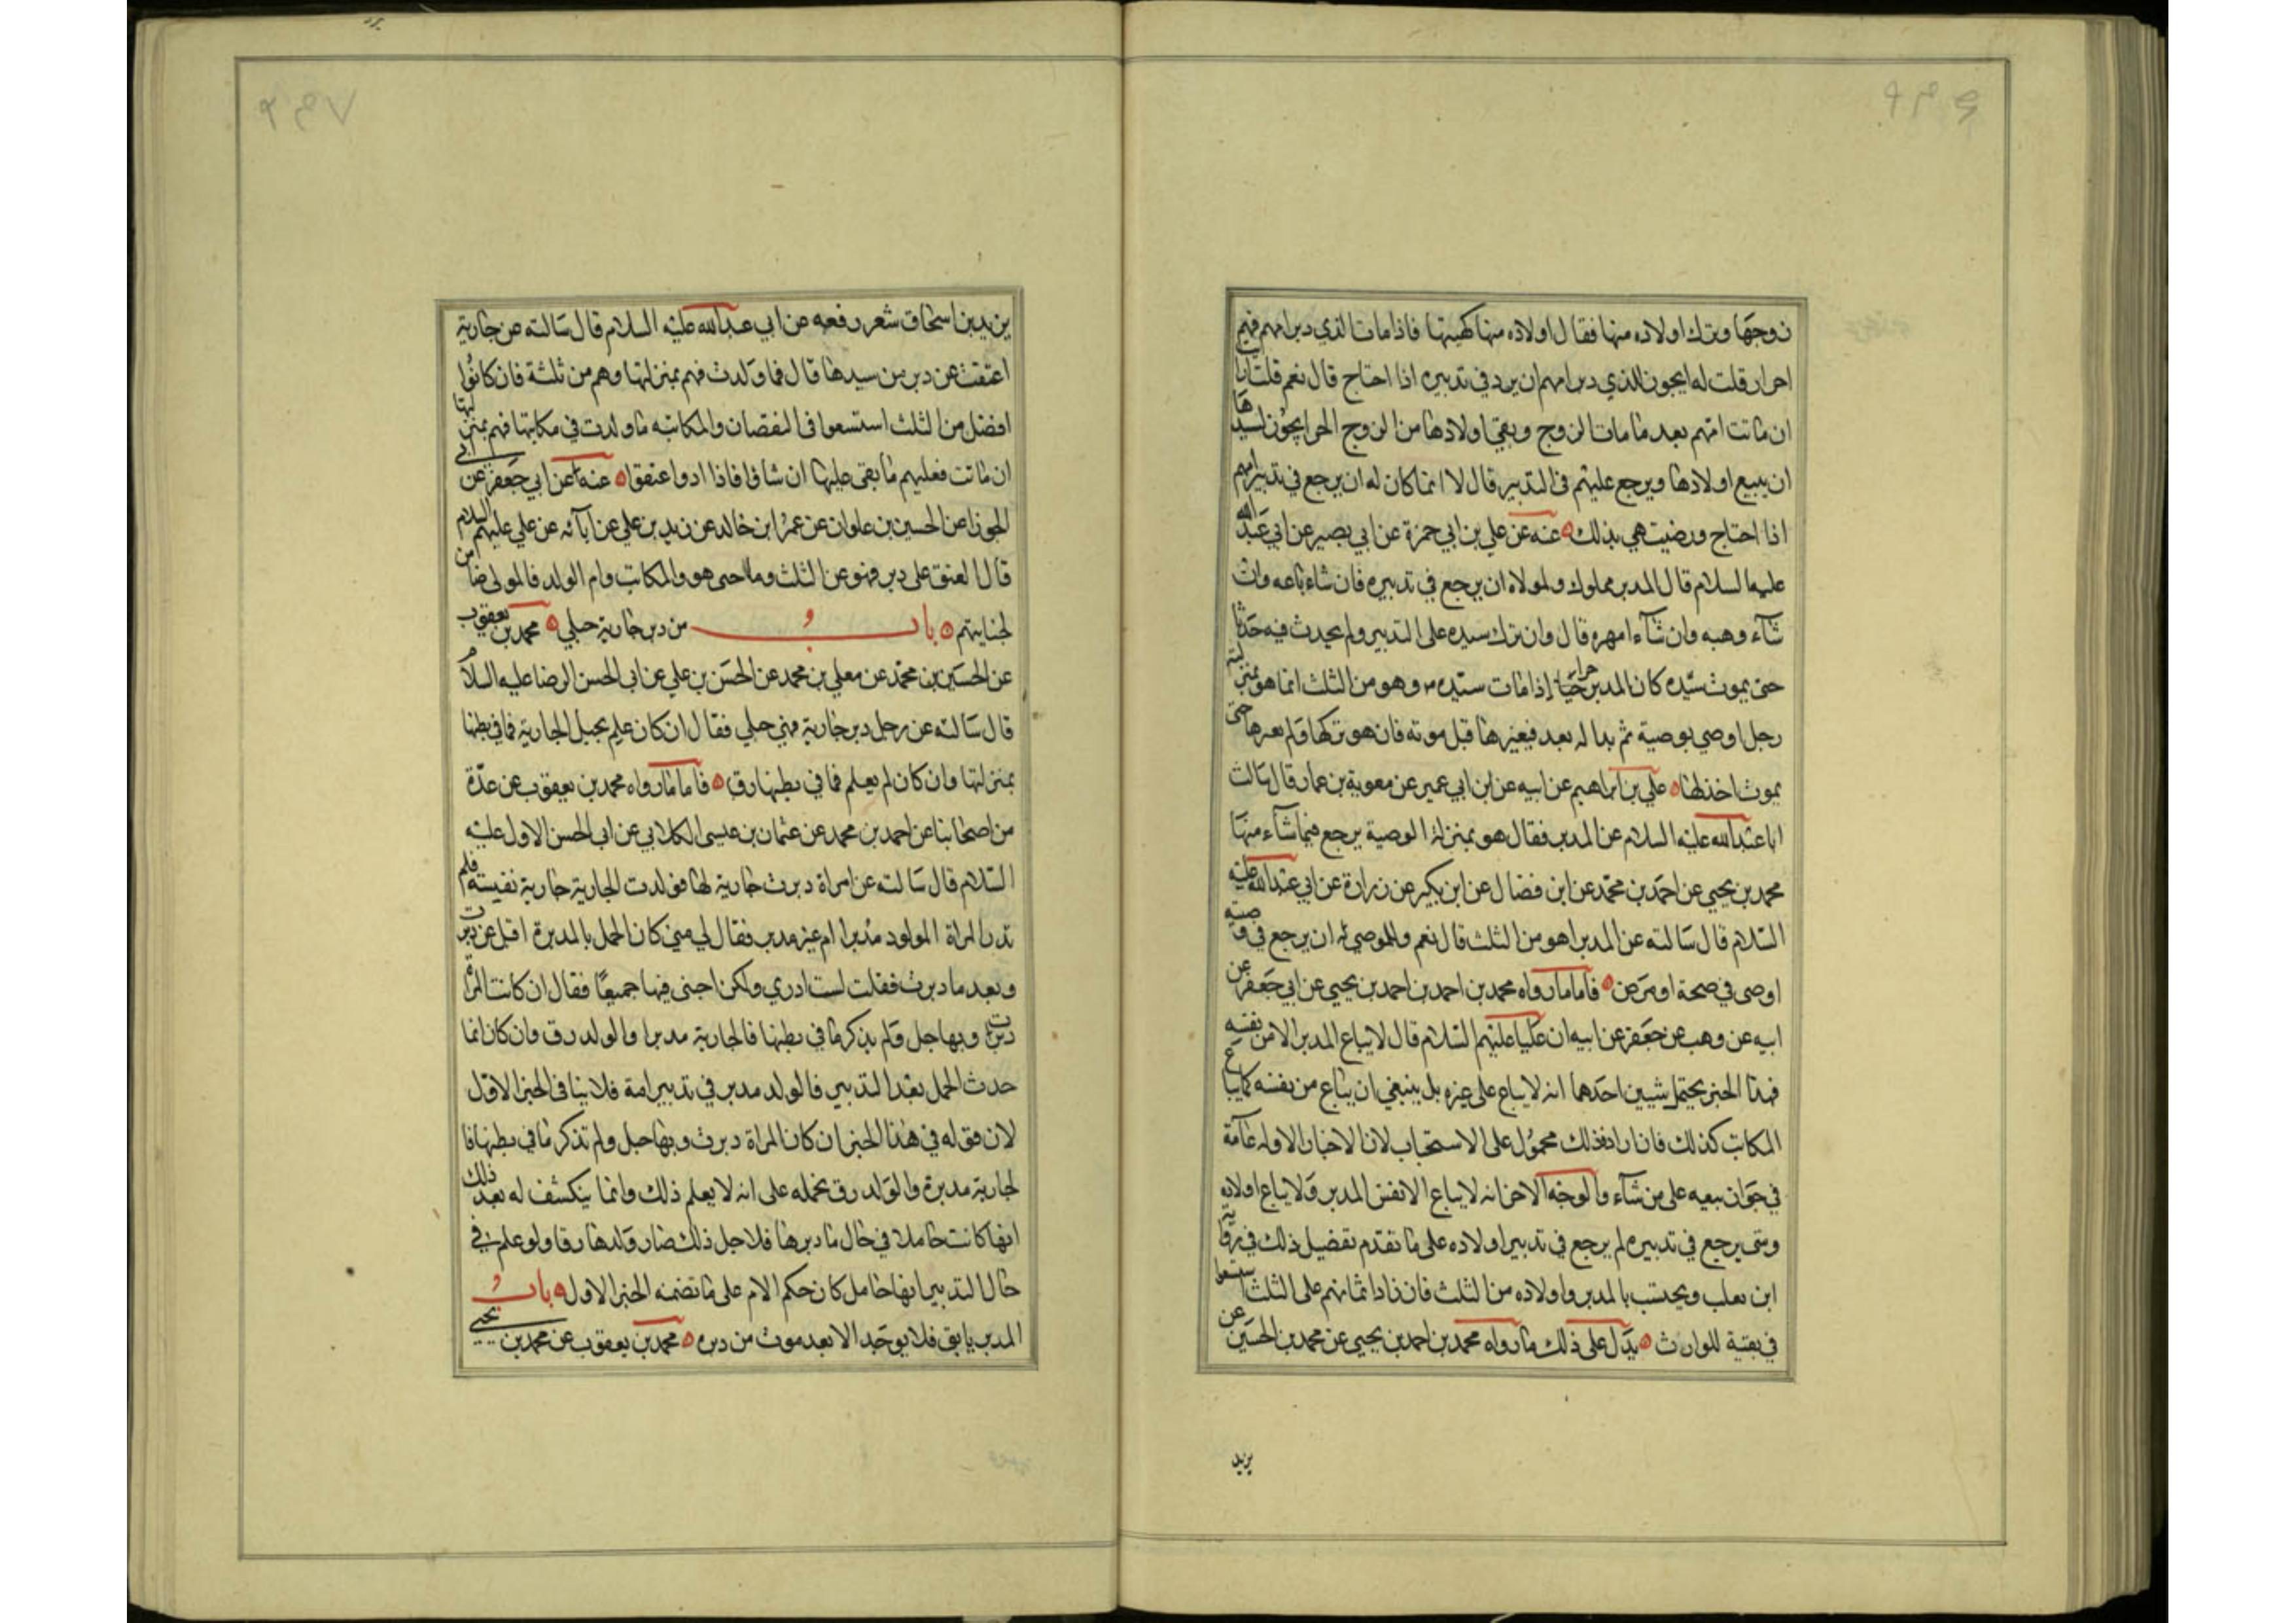 زوجها وترك اولاده منها فقال اولاده منها كهيئتها فاذا مات الذي دبر امهم فهم
احرار قلت له ايجوز للذي دبر امهم ان يرد في تدبيره اذا احتاج قال نعم قلت ارايت
ان ماتت امهم بعد ما مات الزوج وبقي اولادها من الزوج الحر ايجوز لسيدها
ان يبيع اولادها ويرجع عليهم في التدبير قال لا انما كان له ان يرجع في تدبير امهم
اذا احتاج ورضيت هي بذلك عنه عن علي بن ابي حمزة عن ابي بصير عن ابي عبد الله
عليهما السلام قال المدبر مملوك ولمولاه ان يرجع في تدبيره فان شاء باعه وان
شآء وهبه وان شآء امهره قال وان ترك سيده على التدبير ولم يحدث فيه حدثا
حتى يموت سيده كان المدبر حرا اذا مات سيده وهو من الثلث انما هو بمنزلة
رجل اوصي بوصية ثم بدا له بعد فيغيرها قبل موته فان هو تركها ولم يغيرها حتى
يموت اخذ بها علي بن ابراهيم عن ابيه عن ابن ابي عمير عن معوية بن عمار قال سالت
ابا عبد الله عليه السلام عن المدبر فقال هو بمنزلة الوصية يرجع فيما شآء منها
محمد بن يحيي عن احمد بن محمد عن ابن فضال عن ابن بكير عن زرارة عن ابي عبد الله عليه
السلام قال سالته عن المدبر اهو من الثلث قال نعم وللموصي له ان يرجع في وصيته
اوصى في صحة او مرض فاما ما رواه محمد بن احمد بن احمد بن يحيي عن ابي جعفر عن
ابيه عن وهب عن جعفر عن ابيه ان عليا عليهم السلام قال لا يباع المدبر الا من نفسه
فهذا الخبر يحتمل شيين احدهما انه لا يباع على غيره بل ينبغي ان يباع من نفسه كما يباع
المكاتب كذلك فان اراد فذلك محمول على الاستحباب لان الاخبار الاوله عآمة
في جوان بيعه على من شآء والوجه الاخر انه لا يباع الا نفس المدبر ولا يباع اولاده
ومتى يرجع في تدبيره لم يرجع في تدبير اولاده على ما تقدم تفضيل ذلك في رواية
ابن تغلب ويحتسب بالمدبر واولاده من الثلث فان زاد اثمانهم على الثلث استسعوا
في بقية للوارث يدل على ذلك ما رواه محمد بن احمد بن يحيي عن محمد بن الحسين عن
يزيد
يزيد بن اسحاق شعر رفعه عن ابي عبد الله عليه السلام قال سالته عن جارية
اعتقت عن دبر من سيدها قال فما ولدت فهم بمنزلتها وهم من ثلثة فان كانوا
افضل من الثلث استسعوا في النقصان والمكاتبه ما ولدت في مكاتبتها فهم بمنزلتها
ان ماتت فعليهم ما بقي عليها ان شاؤا فاذا ادوا عتقوا عنه عن ابي جعفر عن ابي
الجوزا عن الحسين بن علوان عن عمر ابن خالد عن زيد بن علي عن آبائه عن علي عليهم السلام
قال العتق على دبر فهو عن الثلث وما جنى هو والمكاتب وام الولد فالمولى ضامن
لجنايتهم باب من دبر جارية حبلي محمد بن يعقوب
عن الحسين بن محمد عن معلي بن محمد عن الحسن بن علي عن ابي الحسن الرضا عليه السلام
قال سالته عن رجل دبر جارية وهي حبلي فقال ان كان علم بحبل الجارية فما في بطنها
بمنزلتها وان كان لم يعلم فما في بطنها رق فاما ما رواه محمد بن يعقوب عن عدة
من اصحابنا عن احمد بن محمد عن عثمان بن عيسى الكلابي عن ابي الحسن الاول عليه
السلام قال سالته عن امراة دبرت جارية لها فولدت الجارية جارية نفيسة فلم
تدر المراة المولود مدبرا ام غير مدبر فقال لي متى كان الحمل بالمدبرة اقبل عن دبرت
وبعد ما دبرت فقلت لست ادري ولكن اجبني فيها جميعا فقال ان كانت المراة
دبرت وبها حبل ولم يذكر ما في بطنها فالجارية مدبرا والولد رق وان كان انما
حدث الحمل بعد التدبير فالولد مدبر في تدبير امة فلا ينافى الخبر الاول
لان قوله في هذا الخبر ان كان المراة دبرت وبها حبل ولم تذكر ما في بطنها فا
لجارية مدبرة والولد رق نحمله على انه لا يعلم ذلك وانما ينكشف له بعد ذلك
انها كانت حاملا في حال ما دبرها فلاجل ذلك صار ولدها رقا ولو علم في
حال التدبير انها حامل كان حكم الام على ما تضمنه الخبر الاول باب
المدبر يابق فلا يوجد الا بعد موت من دبره محمد بن يعقوب عن محمد بن يحيي